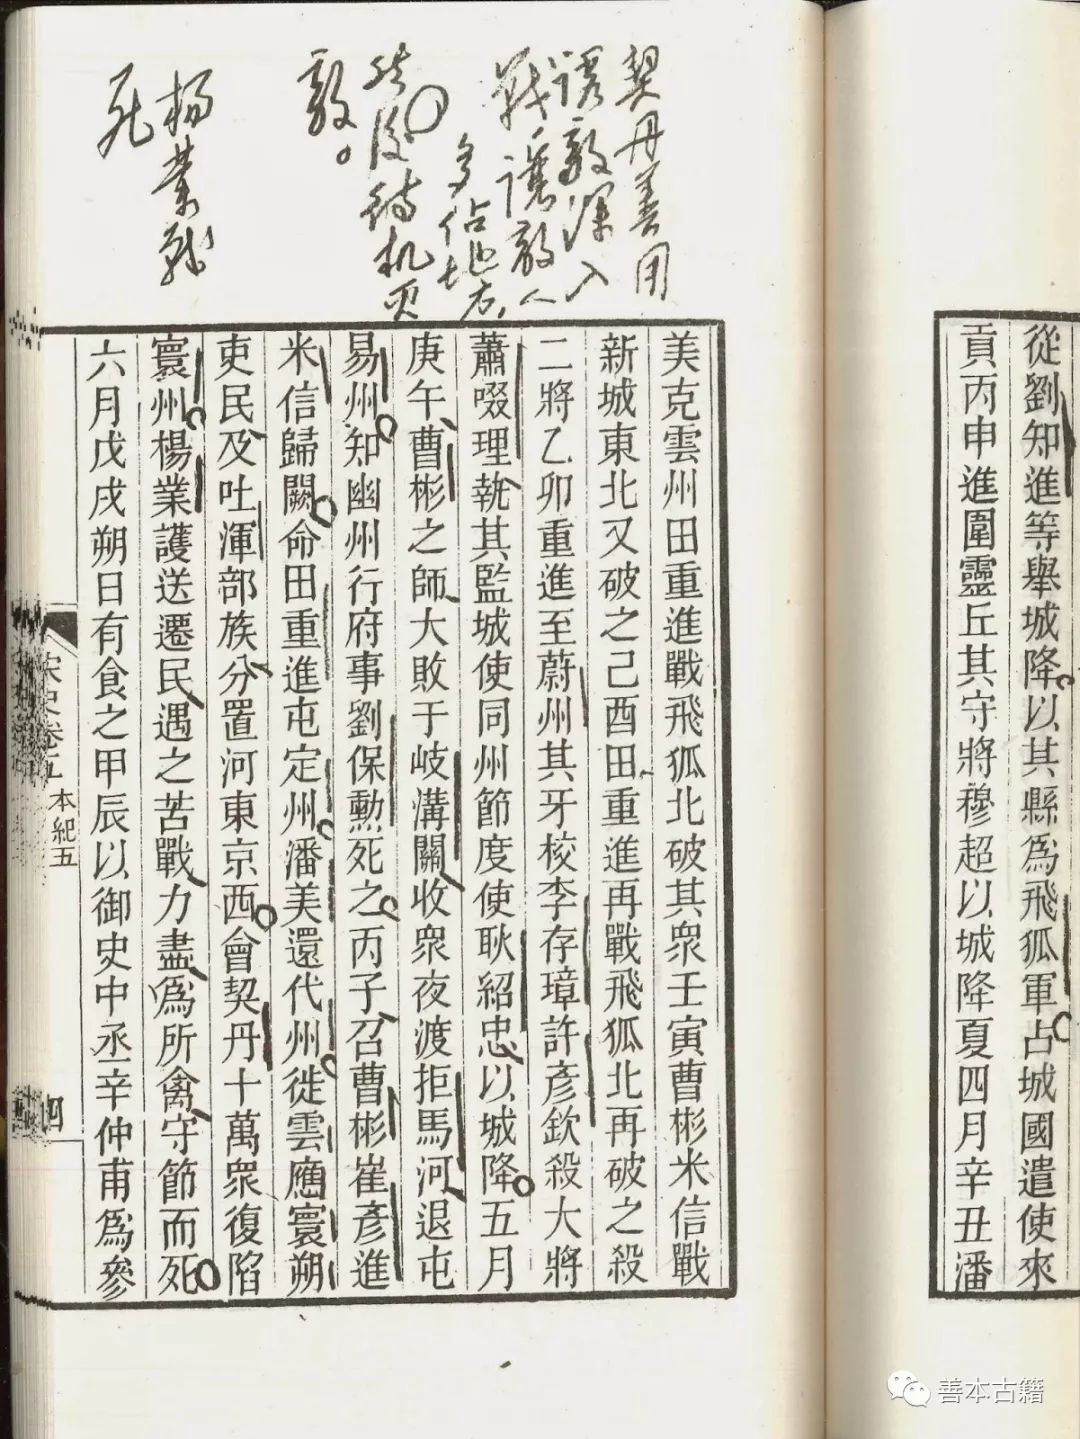 從劉知進等舉城降以其縣爲飛狐軍占城國遣使來
貢丙申進圍靈丘其守將穆超以城降夏四月辛丑潘
契丹善用
诱敌深入
战,讓敌人
多佔地方,
然後待机灭
敌。
杨業战
死
美克雲州田重進戰飛狐北破其衆壬寅曹彬米信戰
新城東北又破之己酉田重進再戰飛狐北再破之殺
二將乙卯重進至蔚州其牙校李存璋許彥欽殺大將
蕭啜理執其監城使同州節度使耿紹忠以城降五月
庚午曹彬之師大敗于岐溝關收衆夜渡拒馬河退屯
易州知幽州行府事劉保勳死之丙子召曹彬崔彥進
米信歸闕命田重進屯定州潘美還代州徙雲應寰朔
吏民及吐渾部族分置河東京西會契丹十萬衆復陷
寰州楊業護送遷民遇之苦戰力盡爲所禽守節而死
六月戊戌朔日有食之甲辰以御史中丞辛仲甫爲參
宋史卷五
本紀五
四
善本古籍